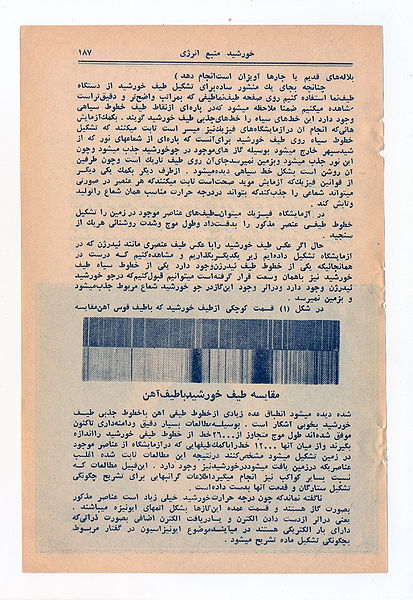 خورشید منبع انرژی ۱۸۷
بلاله‌های قدیم یا جارها آویزان است‌انجام دهد )
چنانچه بجای یك منشور ساده برای تشکیل طیف خورشید از دستگاه
طیف‌نما استفاده کنیم روی صفحه طیف‌نما طیفی که بمراتب واضح‌تر و دقیق‌تر است
مشاهده میکنیم ضمنا ملاحظه میشود که در پاره‌ای از نقاط طیف خطوط سیاهی
وجود دارد این خط‌های سیاه را خط‌های جذبی طیف خورشید گویند . بکمك آزمایش
هائی‌که انجام آن در آزمایشگاه‌های فیزیك نیز میسر است ثابت میکنند که تشکیل
خطوط سیاه روی طیف خورشید برای آنست که پاره‌ای از شعاعهای نور که از
شید سپهر خارج میشود بوسیله گاز های موجود در جو خورشید جذب میشود وچون
این نور جذب میشود وبزمین نمیرسد جای آن روی طیف تاریك است وچون طرفین
آن روشن است بشکل خط سیاهی دیده میشود . از طرف دیگر بکمك یکی دیگر
از قوانین فیزیك که آزمایش موید صحت است ثابت میکنند که هر عنصر در صورتی
میتواند شعاعی را جذب کند که بتواند در درجه حرارت مناسب همان شعاع را تولید
وتابش کند .
در آزمایشگاه فیزیك میتوان طیف‌های عناصر موجود در زمین را تشکیل
خطوط طیفی عنصر مذکور را بدقت داد وطول موج وشدت روشنائی هریك از
سنجید .
حال اگر عکس طیف خورشید را با عکس طیف عنصری مانند ئیدرژن که در
آزمایشگاه تشکیل داده‌ایم زیر یکدیگر بگذاریم و مشاهده کنیم که درست در
همانجائی‌که یکی از خطوط طیف ئیدرژن وجود دارد یکی از خطوط سیاه طیف
خورشید نیز بهمان وسعت قرار گرفته است میتوانیم قبول کنیم که در جو خورشید
ئیدرژن وجود دارد ودر اثر وجود این گاز در جو خورشید شعاع مربوط جذب میشود
و بزمین نمیرسد .
در شکل (۱) قسمت کوچکی از طیف خورشید که با طیف قوس آهن مقایسه
مقایسه طیف خورشید با طیف آهن
شده دیده میشود انطباق عده زیادی از خطوط طیفی آهن با خطوط جذبی طیف
خورشید بخوبی آشکار است . بوسیله مطالعات بسیار دقیق ودامنه‌داری تاکنون
موفق شده‌اند طول موج متجاوز از ۲۶۰۰۰ خط از خطوط طیفی خورشید را اندازه
بگیرند واز میان آنها ۱۲۰۰۰ خط را با کمك طیفهایی که در آزمایشگاه از عناصر موجود
در زمین تشکیل میشود مشخص کنند در نتیجه این مطالعات ثابت شده اغلب
عناصریکه در زمین یافت میشود در خورشید نیز وجود دارد . این قبیل مطالعات که
نسبت بسایر کواکب نیز انجام میگیرد اطلاعات گرانبهایی برای تشریح چگونگی
تشکیل ستارگان و قدمت آنها بدست داده است .
ناگفته نماند که چون درجه حرارت خورشید خیلی زیاد است عناصر مذکور
بصورت گاز هستند و قسمت عمده این گازها بشکل اتمهای ایونیزه میباشند .
یعنی در اثر از دست دادن الکترن و یا دریافت الکترن اضافی بصورت ذراتی که
دارای بار الکتریکی هستند در میآیند موضوع ایونیزاسیون در گفتار مربوط
بچگونگی تشکیل ماده تشریح میشود .